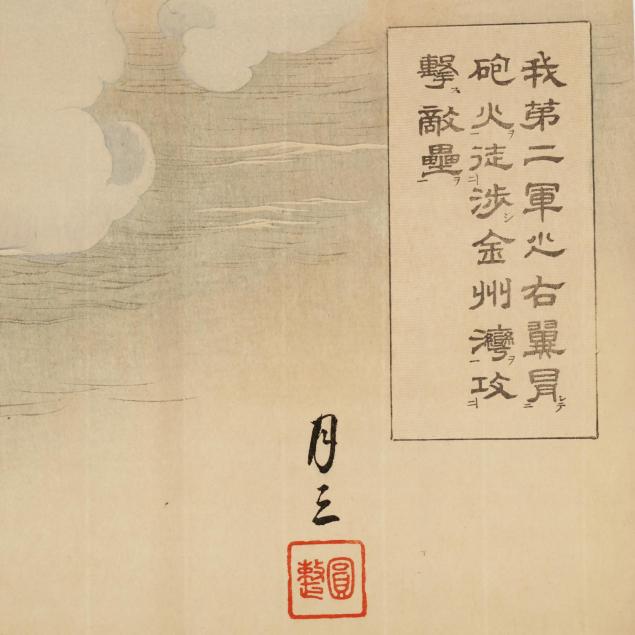 我第二軍之右翼冒
砲火徒涉金州灣攻
擊敵壘
月三